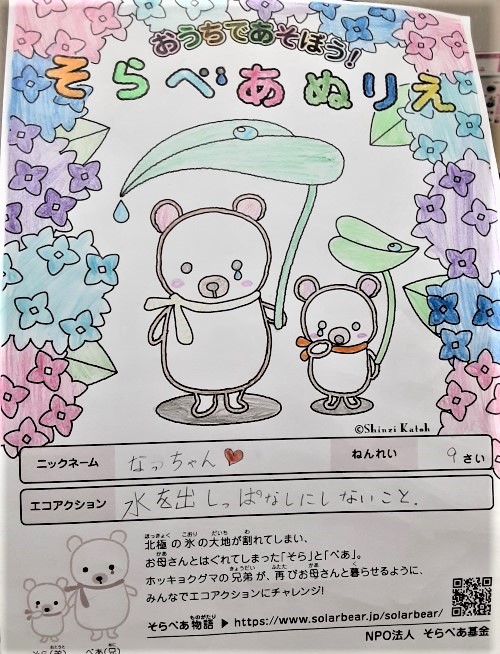 おうちであそぼう！
そらべあぬりえ
©Shinzi Katoh
ニックネーム なっちゃん♥ ねんれい 9さい
エコアクション 水を出しっぱなしにしないこと.
北極の氷の大地が割れてしまい、
お母さんとはぐれてしまった「そら」と「べあ」。
ホッキョクグマの兄弟が、再びお母さんと暮らせるように、
みんなでエコアクションにチャレンジ!
そらべあ物語 ▶ https://www.solarbear.jp/solarbear/
NPO法人 そらべあ基金
そら(弟) べあ(兄)